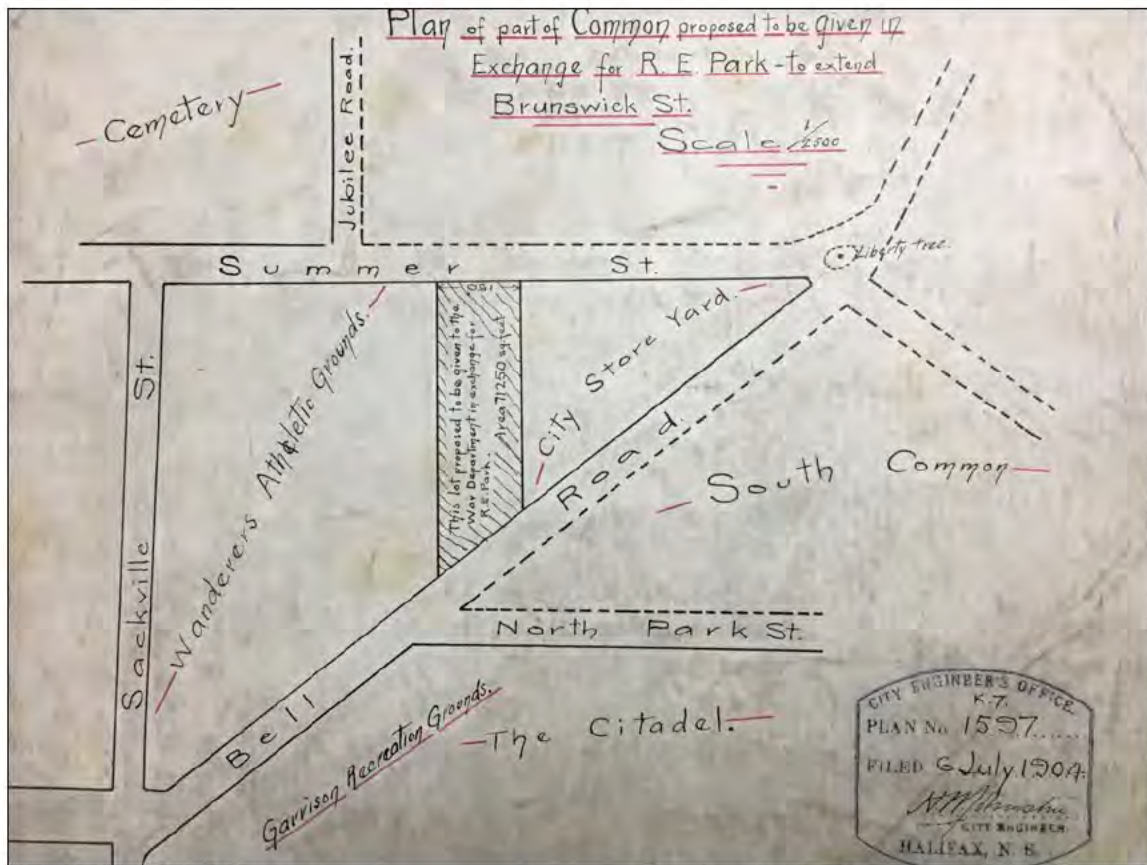 Plan of part of Common proposed to be given in
Exchange for R. E. Park - to extend
Brunswick St.
Scale 1/2500
Cemetery
Jubilee Road.
Summer St.
Liberty tree.
Sackville St.
Wanderers Athletic Grounds.
This lot proposed to be given to the
War Department in exchange for
R.E. Park. Area 71250 sq feet
City Store Yard.
Bell Road
South Common
North Park St.
Garrison Recreation Grounds.
The Citadel.
CITY ENGINEER'S OFFICE
K.7.
PLAN No 1597
FILED 6 July 1904
CITY ENGINEER.
HALIFAX, N. S.